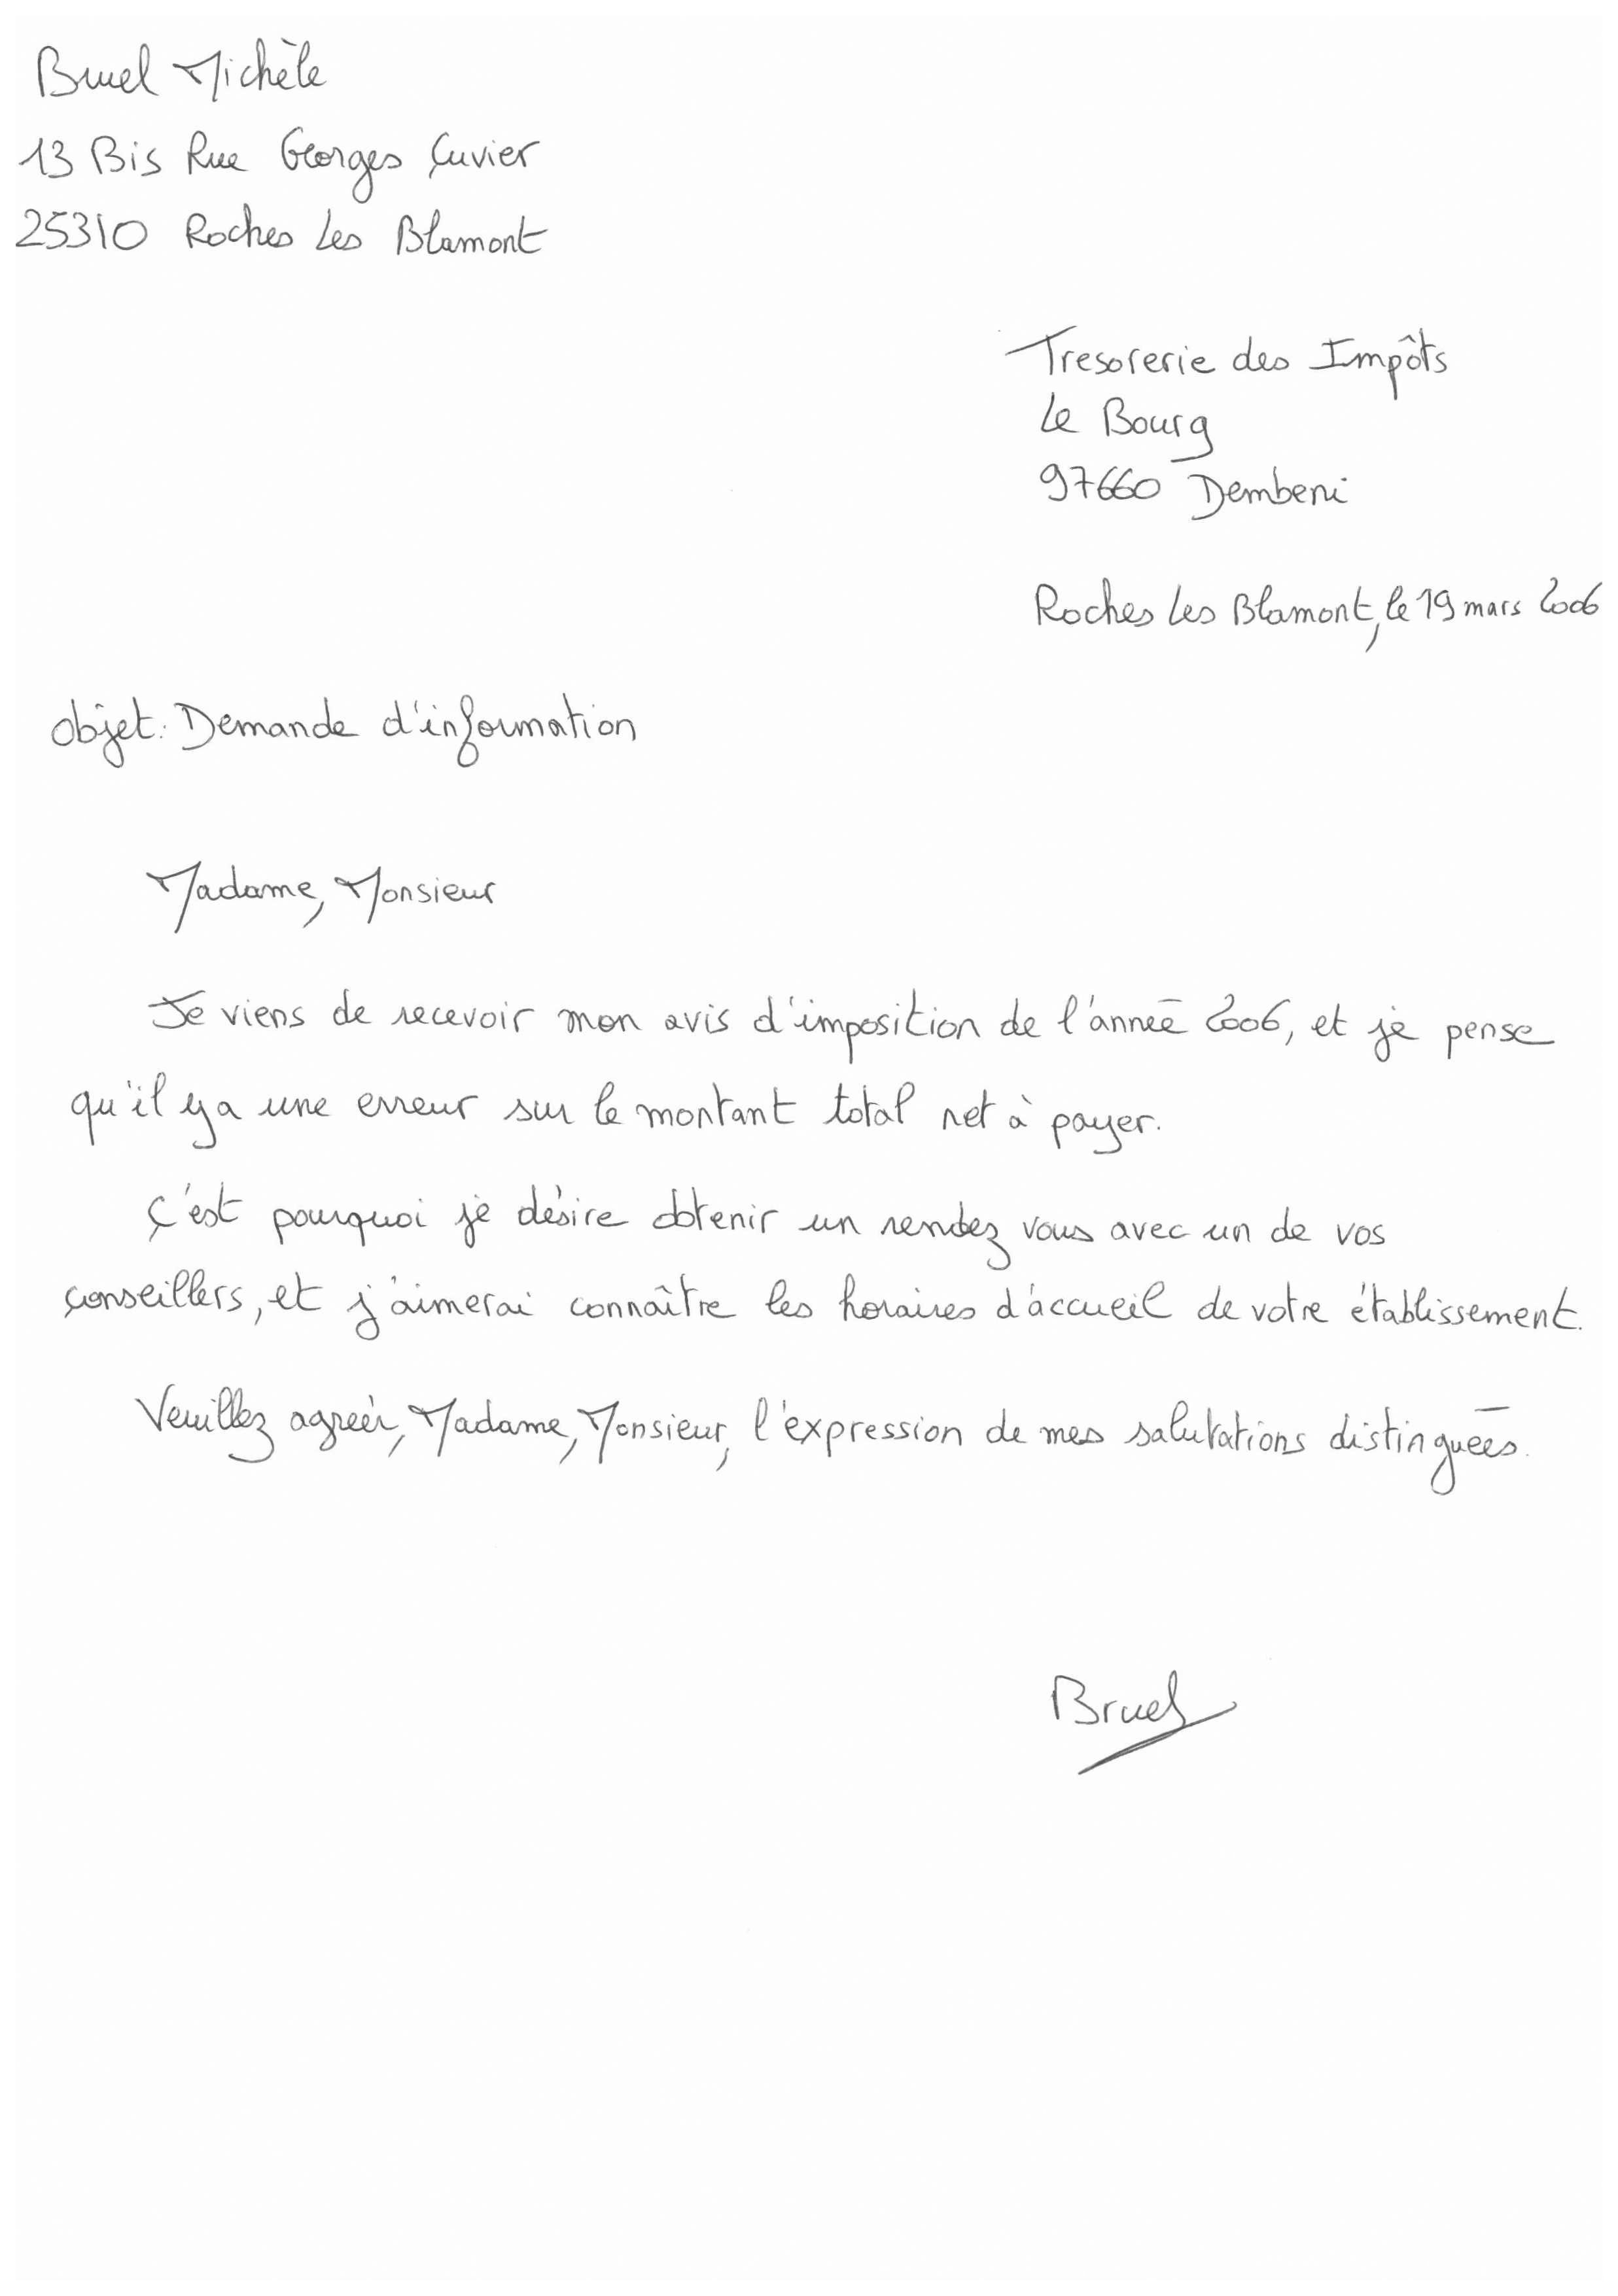 Bruel Michèle
13 Bis Rue Georges Cuvier
25310 Roches Les Blamont
Tresorerie des Impôts
Le Bourg
97660 Dembeni
Roches Les Blamont, le 19 mars 2006
Objet: Demande d'information
Madame, Monsieur
Je viens de recevoir mon avis d'imposition de l'année 2006, et je pense
qu'il y a une erreur sur le montant total net à payer.
C'est pourquoi je désire obtenir un rendez vous avec un de vos
conseillers, et j'aimerai connaître les horaires d'accueil de votre établissement.
Veuillez agréér, Madame, Monsieur, l'expression de mes salutations distinguées.
Bruel